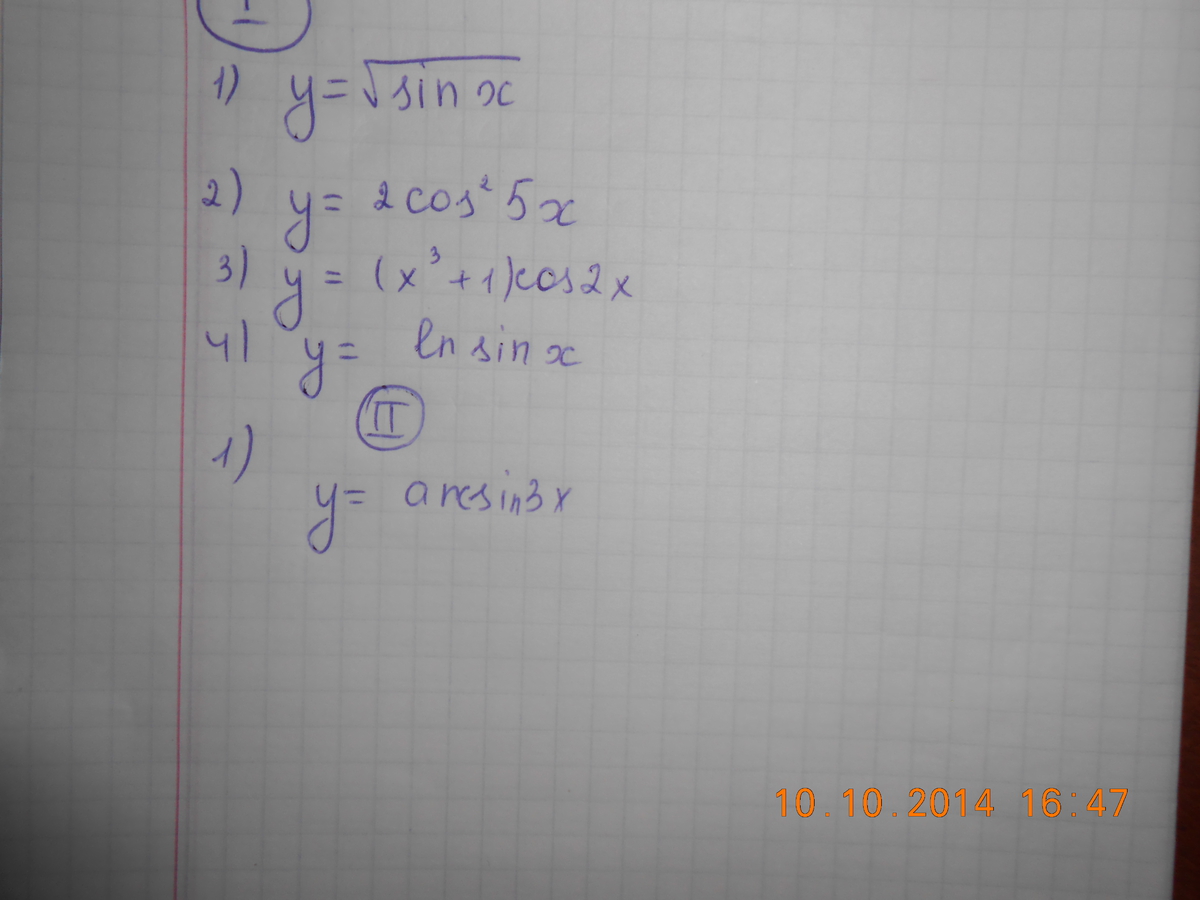 I
1) y = √sin x
2) y = 2cos² 5x
3) y = (x³ + 1)cos2x
4) y = ln sin x
II
1)
y = arcsin3x
10.10.2014 16:47